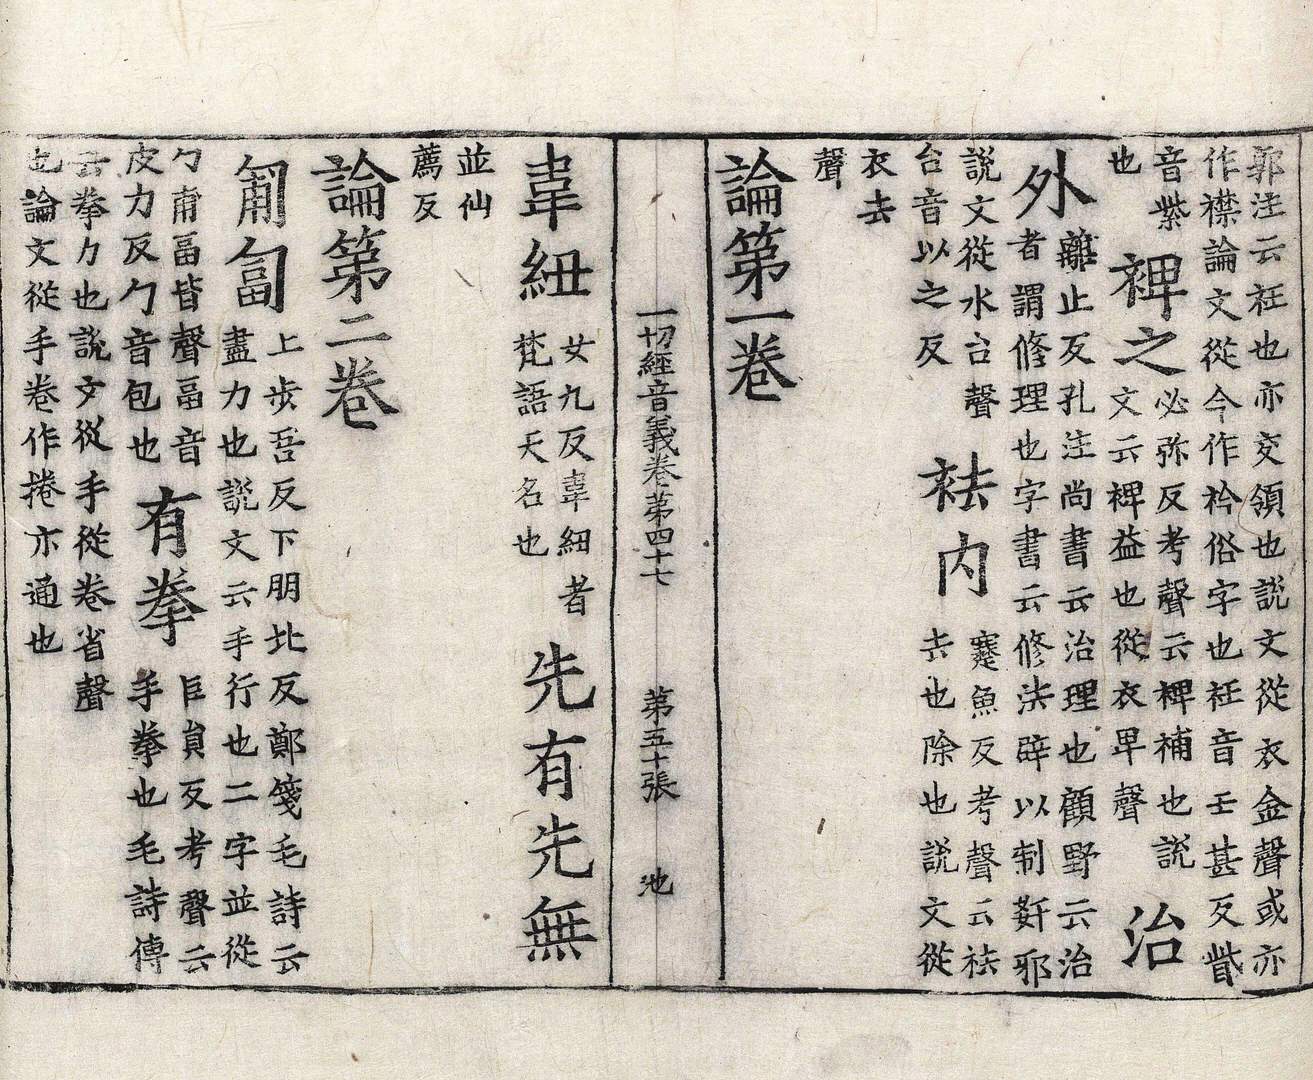 郭注云衽也亦交領也説文從衣金聲或亦
作襟論文從今作衿俗字也衽音壬甚反眥
音紫
也
裨之
必弥反考聲云裨補也説
文云裨益也從衣卑聲
治
外
離止反孔注尚書云治理也顧野云治
者謂修理也字書云修法辟以制姧邪
説文從水台聲
台音以之反
袪内
蹇魚反考聲云袪
去也除也説文從
衣去
聲
論第一卷
一切經音義卷第四十七 第五十張 池
韋紐
女九反韋細者
梵語天名也
先有先無
並仙
薦反
論第二卷
匍匐
上步吾反下朋北反鄭箋毛詩云
盡力也説文云手行也二字並從
勹甫畐皆聲畐音
皮力反勹音包也
有拳
臣員反考聲云
手拳也毛詩傳
云拳力也説文從手從卷省聲
也論文從手卷作捲亦通也